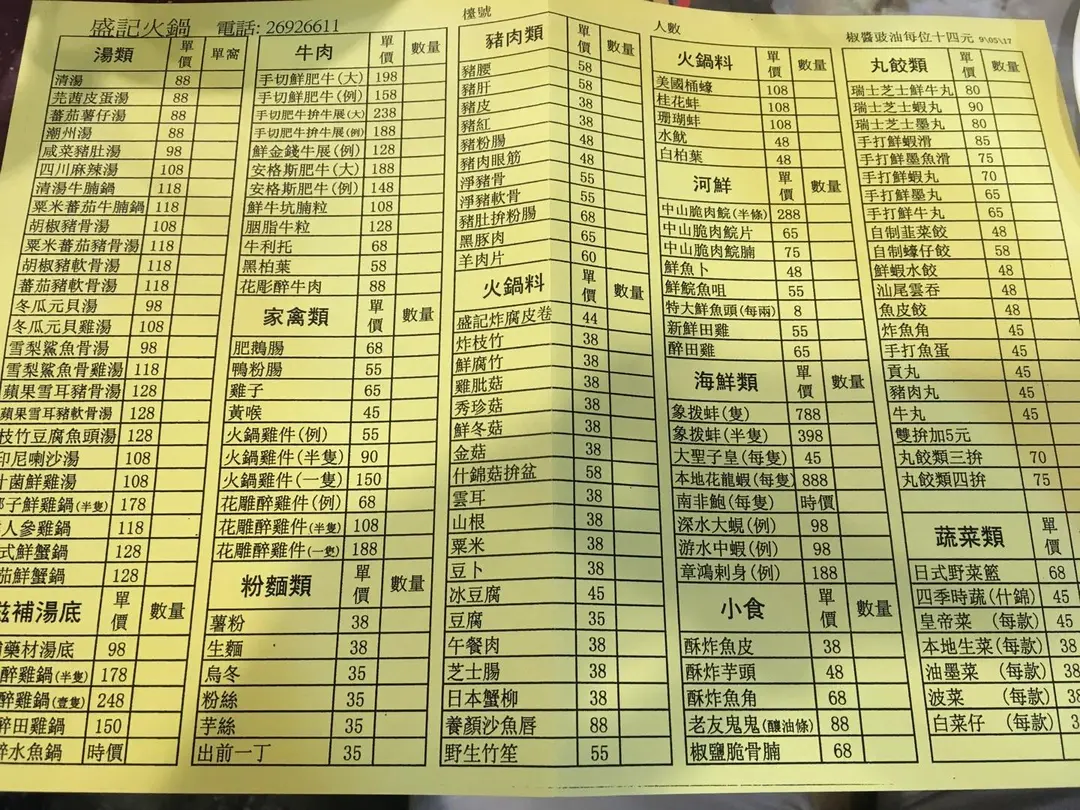 盛記火鍋 電話: 26926611 檯號 人數 椒醬豉油每位十四元 9\05\17
湯類 單價 單窩
清湯 88
芫茜皮蛋湯 88
蕃茄薯仔湯 88
潮州湯 88
咸菜豬肚湯 98
四川麻辣湯 108
清湯牛腩鍋 118
粟米蕃茄牛腩鍋 118
胡椒豬骨湯 108
粟米蕃茄豬骨湯 118
胡椒豬軟骨湯 118
蕃茄豬軟骨湯 118
冬瓜元貝湯 98
冬瓜元貝雞湯 108
雪梨鯊魚骨湯 98
雪梨鯊魚骨雞湯 118
蘋果雪耳豬骨湯 128
蘋果雪耳豬軟骨湯 128
枝竹豆腐魚頭湯 128
印尼喇沙湯 108
什菌鮮雞湯 108
子鮮雞鍋(半隻) 178
人參雞鍋 118
式鮮蟹鍋 128
茄鮮蟹鍋 128
滋補湯底 單價 數量
藥材湯底 98
醉雞鍋(半隻) 178
醉雞鍋(壹隻) 248
醉田雞鍋 150
醉水魚鍋 時價
牛肉 單價 數量
手切鮮肥牛(大) 198
手切鮮肥牛(例) 158
手切肥牛拚牛展(大) 238
手切肥牛拚牛展(例) 188
鮮金錢牛展(例) 128
安格斯肥牛(大) 188
安格斯肥牛(例) 148
鮮牛坑腩粒 108
胭脂牛粒 128
牛利托 68
黑柏葉 58
花彫醉牛肉 88
家禽類 單價 數量
肥鵝腸 68
鴨粉腸 55
雞子 65
黃喉 45
火鍋雞件(例) 55
火鍋雞件(半隻) 90
火鍋雞件(一隻) 150
花雕醉雞件(例) 68
花雕醉雞件(半隻) 108
花雕醉雞件(一隻) 188
粉麵類 單價 數量
薯粉 38
生麵 38
烏冬 35
粉絲 35
芋絲 35
出前一丁 35
豬肉類 單價 數量
豬腰 58
豬肝 58
豬皮 38
豬紅 38
豬粉腸 48
豬肉眼筋 48
淨豬骨 55
淨豬軟骨 55
豬肚拚粉腸 68
黑豚肉 65
羊肉片 60
火鍋料 單價 數量
盛記炸腐皮卷 44
炸枝竹 38
鮮腐竹 38
雞肶菇 38
秀珍菇 38
鮮冬菇 38
金菇 38
什錦菇拚盆 58
雲耳 38
山根 38
粟米 38
豆卜 38
冰豆腐 45
豆腐 35
午餐肉 38
芝士腸 38
日本蟹柳 38
養顏沙魚唇 88
野生竹笙 55
火鍋料 單價 數量
美國桶蠔 108
桂花蚌 108
珊瑚蚌 108
水魷 48
白柏葉 48
河鮮 單價 數量
中山脆肉鯇(半條) 288
中山脆肉鯇片 65
中山脆肉鯇腩 75
鮮魚卜 48
鮮鯇魚咀 55
特大鮮魚頭(每兩) 8
新鮮田雞 55
醉田雞 65
海鮮類 單價 數量
象拔蚌(隻) 788
象拔蚌(半隻) 398
大聖子皇(每隻) 45
本地花龍蝦(每隻) 888
南非鮑(每隻) 時價
深水大蜆(例) 98
游水中蝦(例) 98
章鴻刺身(例) 188
小食 單價 數量
酥炸魚皮 38
酥炸芋頭 48
酥炸魚角 68
老友鬼鬼(釀油條) 88
椒鹽脆骨腩 68
丸餃類 單價 數量
瑞士芝士鮮牛丸 80
瑞士芝士蝦丸 90
瑞士芝士墨丸 80
手打鮮蝦滑 85
手打鮮墨魚滑 75
手打鮮蝦丸 70
手打鮮墨丸 65
手打鮮牛丸 65
自制韮菜餃 48
自制蠔仔餃 58
鮮蝦水餃 48
汕尾雲吞 48
魚皮餃 48
炸魚角 45
手打魚蛋 45
貢丸 45
豬肉丸 45
牛丸 45
雙拚加5元
丸餃類三拚 70
丸餃類四拚 75
蔬菜類 單價
日式野菜籃 68
四季時蔬(什錦) 45
皇帝菜 (每款) 45
本地生菜(每款) 38
油墨菜 (每款) 38
波菜 (每款) 38
白菜仔 (每款) 3